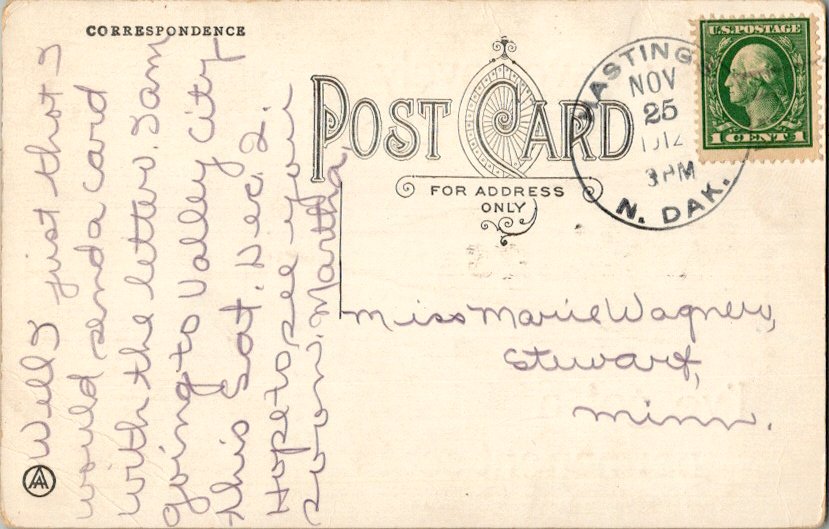 CORRESPONDENCE
POST CARD
FOR ADDRESS
ONLY
HASTINGS
NOV
25
1912
3PM
N. DAK.
U.S. POSTAGE
1 CENT 1
Well I just thot I
would send a card
with the letter. I am
going to Valley City
this Sat. Dec. 2.
Hope to see you
soon. Martha.
Miss Marie Wagner,
Stewart,
Minn.
AA